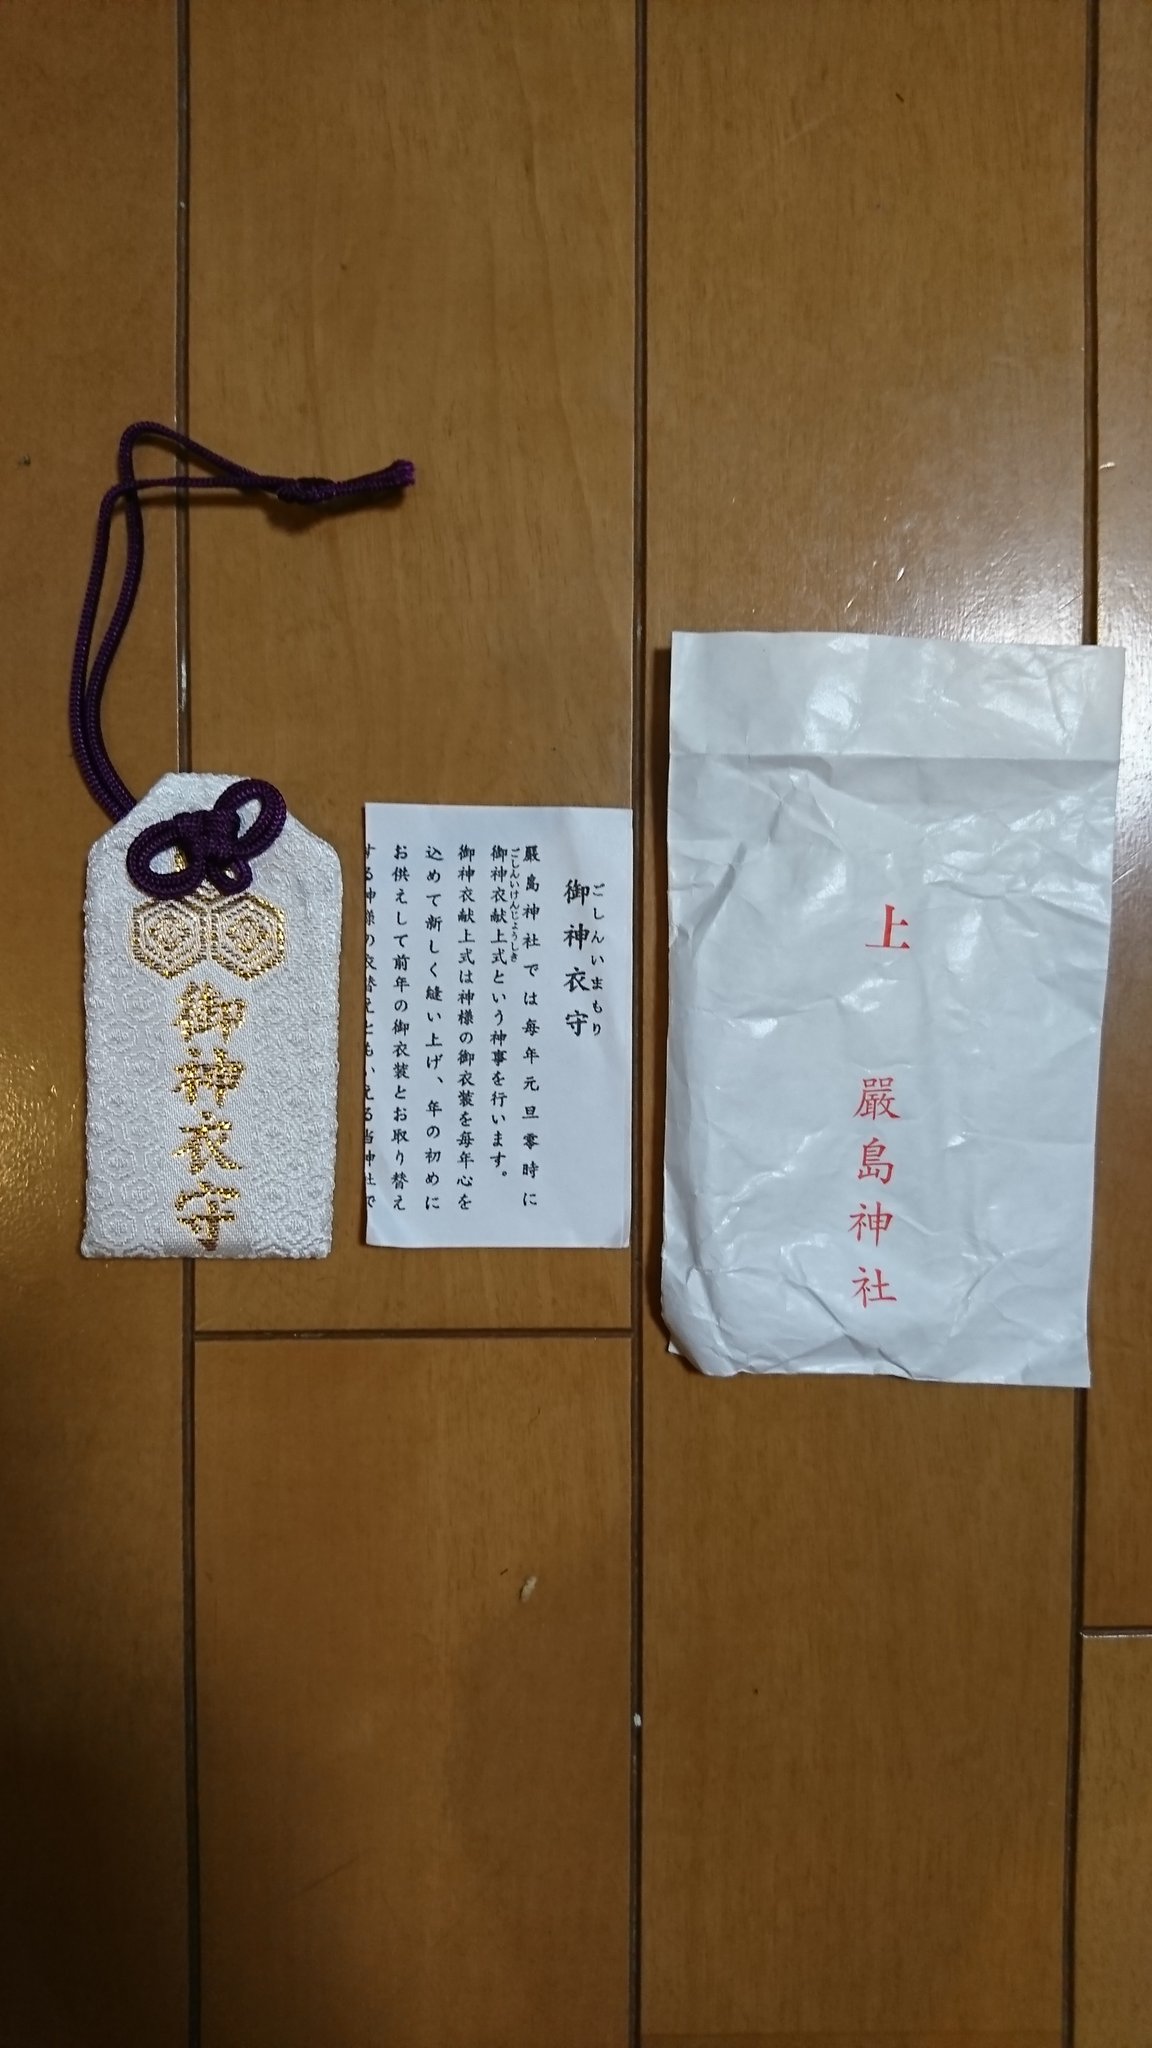 御神衣守
ごしんいまもり
御神衣守
嚴島神社では毎年元旦零時に
ごしんいけんじょうしき
御神衣献上式という神事を行います。
御神衣献上式は神様の御衣装を毎年心を
込めて新しく縫い上げ、年の初めに
お供えして前年の御衣装とお取り替え
する神様の衣替えともいえる当神社で
上
嚴島神社